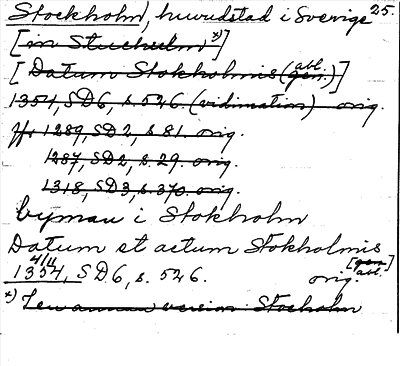 Stockholm, huvudstad i Sverige 25.
[in Stuchulm x)]
[Datum Stokholmis (gen.) abl.]
1354, SD6, s. 526. (vidimation) orig.
Jfr 1289, SD2, s. 81 orig.
1287, SD2, s. 29. orig.
1318, SD3, s. 370. orig.
byman i Stokholm
Datum et actum Stokholmis
[gen. abl.]
1354 4/11, SD6, s. 526. orig.
x) annan version Stocholm